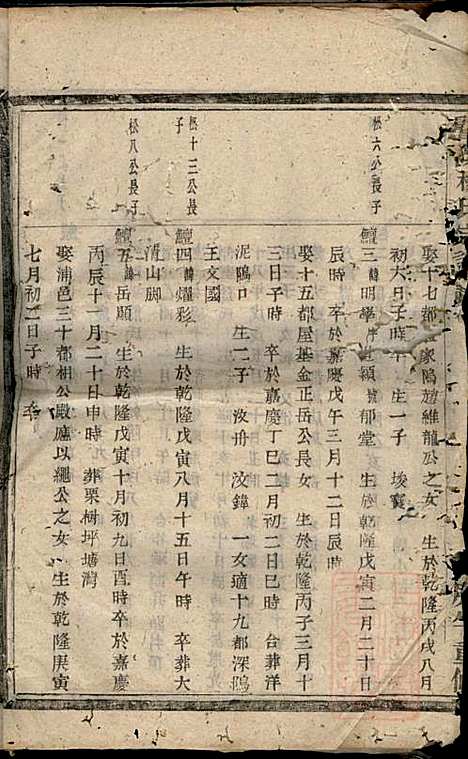 娶十七都 家隝趙維龍公之女 生於乾隆丙戌八月
初六日子時卒 生一子 埈寳
松六公長子
鱣三 明學 頴號郁堂 生於乾隆戊寅二月二十日
辰時 卒於嘉慶戊午三月十二日辰時
娶十五都屋基金正岳公長女 生於乾隆丙子三月十
三日子時 卒於嘉慶丁巳二月初二日巳時 台葬洋
泥隝口 生一子 汝冊 汶鋒 一女適十九都深隝
王文國
松十三公長子
鱣四 燿彩 生於乾隆戊寅八月十五日午時 卒葬大
山脚
松八公長子
鱣五 岳願 生於乾隆戊寅十月初九日酉時卒於嘉慶
丙辰十一月二十日申時 葬栗樹坪塘灣
娶浦邑三十都相公殿㕔以繩公之女 生於乾隆庚寅
七月初二日子時 卒